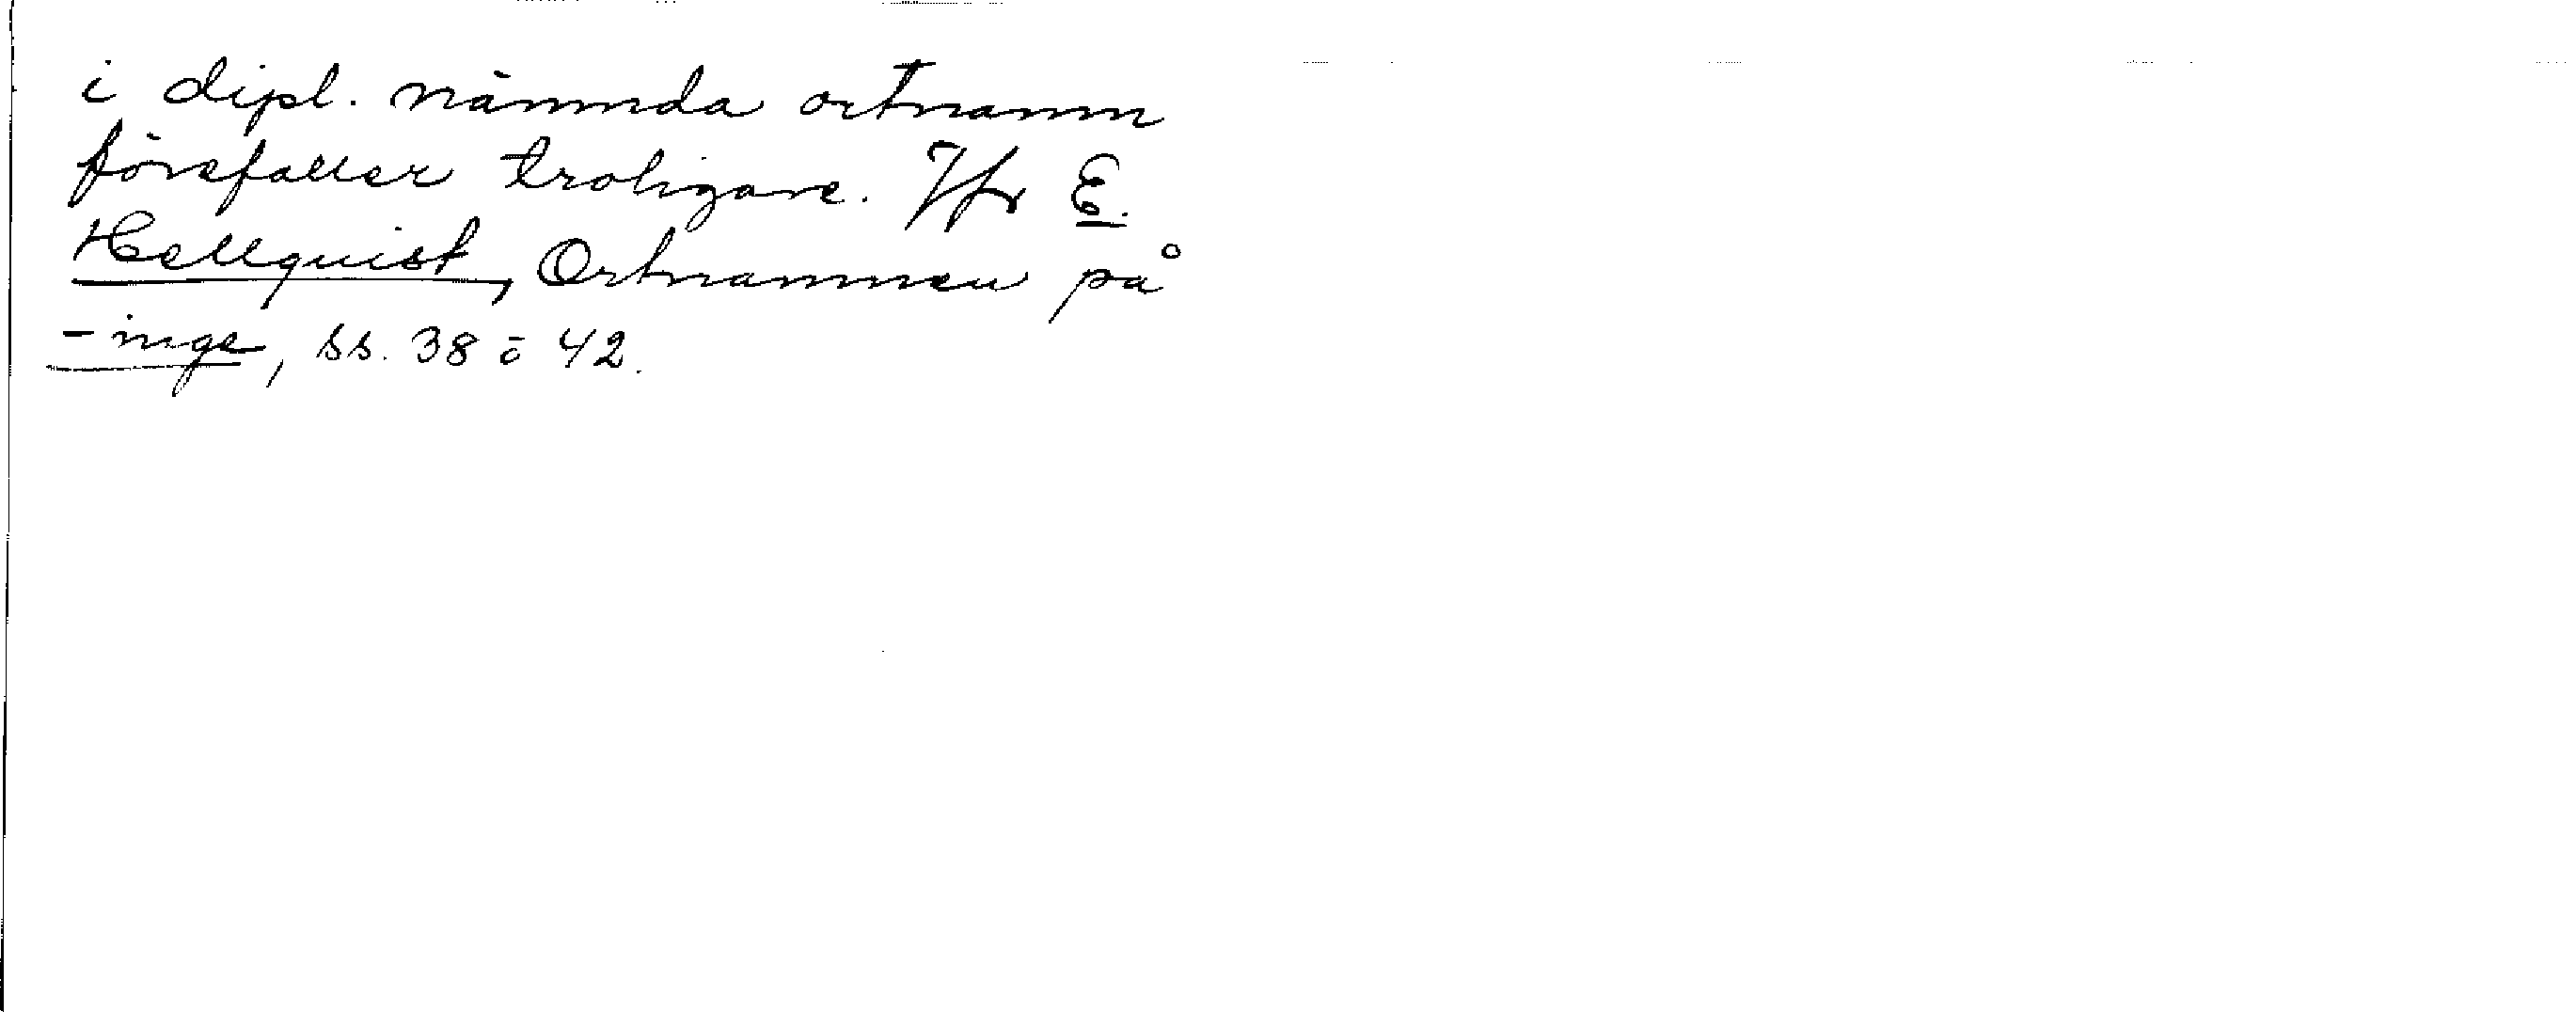 i dipl. nämnda ortnamn
förefaller troligare. Jfr E.
Hellquist, Ortnamnen på
-inge, ss. 38 o 42.